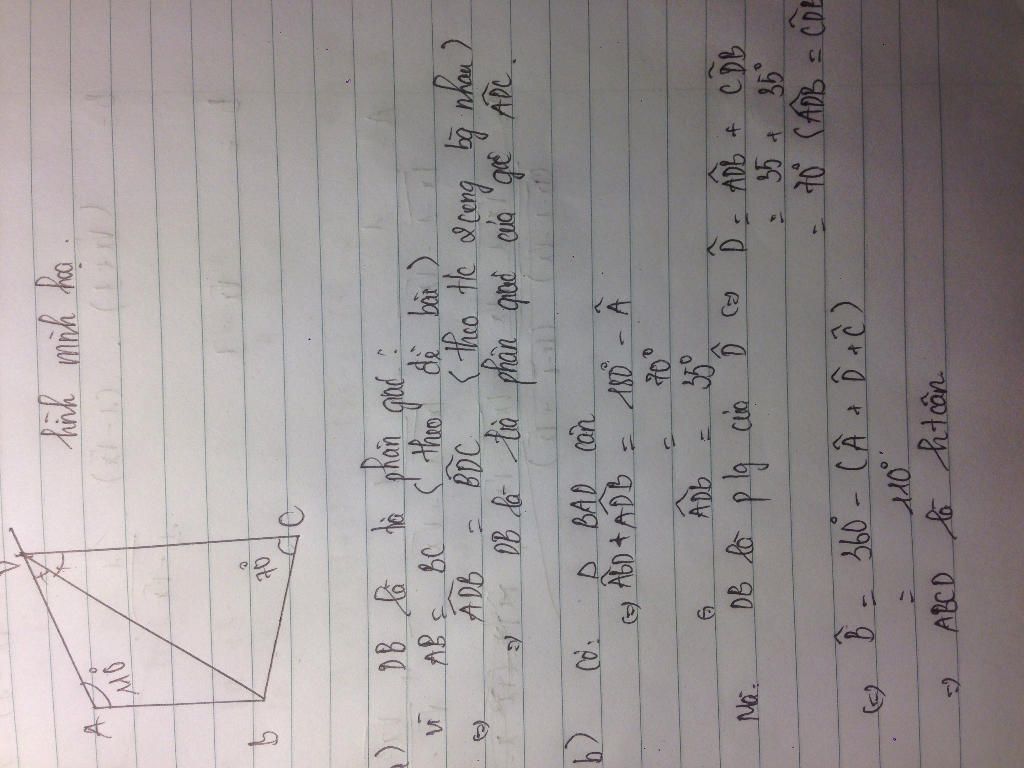 hình minh hoạ.
A 110° D
B 70° C
a) DB là tia phân giác.
vì AB = BC (theo đề bài)
⇔ ADB̂ = BDĈ (theo t/c 2 cung bg nhau)
⇒ DB là tia phân giác của góc ADĈ.
b) Có: Δ BAD cân
⇔ ABD̂ + ADB̂ = 180° - Â
= 70°
ADB̂ = 35°
Mà: DB là p/g của D̂ ⇔ D̂ = ADB̂ + CDB̂
= 35 + 35°
= 70° (ADB̂ = CDB̂
⇔ B̂ = 360° - (Â + D̂ + Ĉ)
= 110°
⇒ ABCD là ht cân.